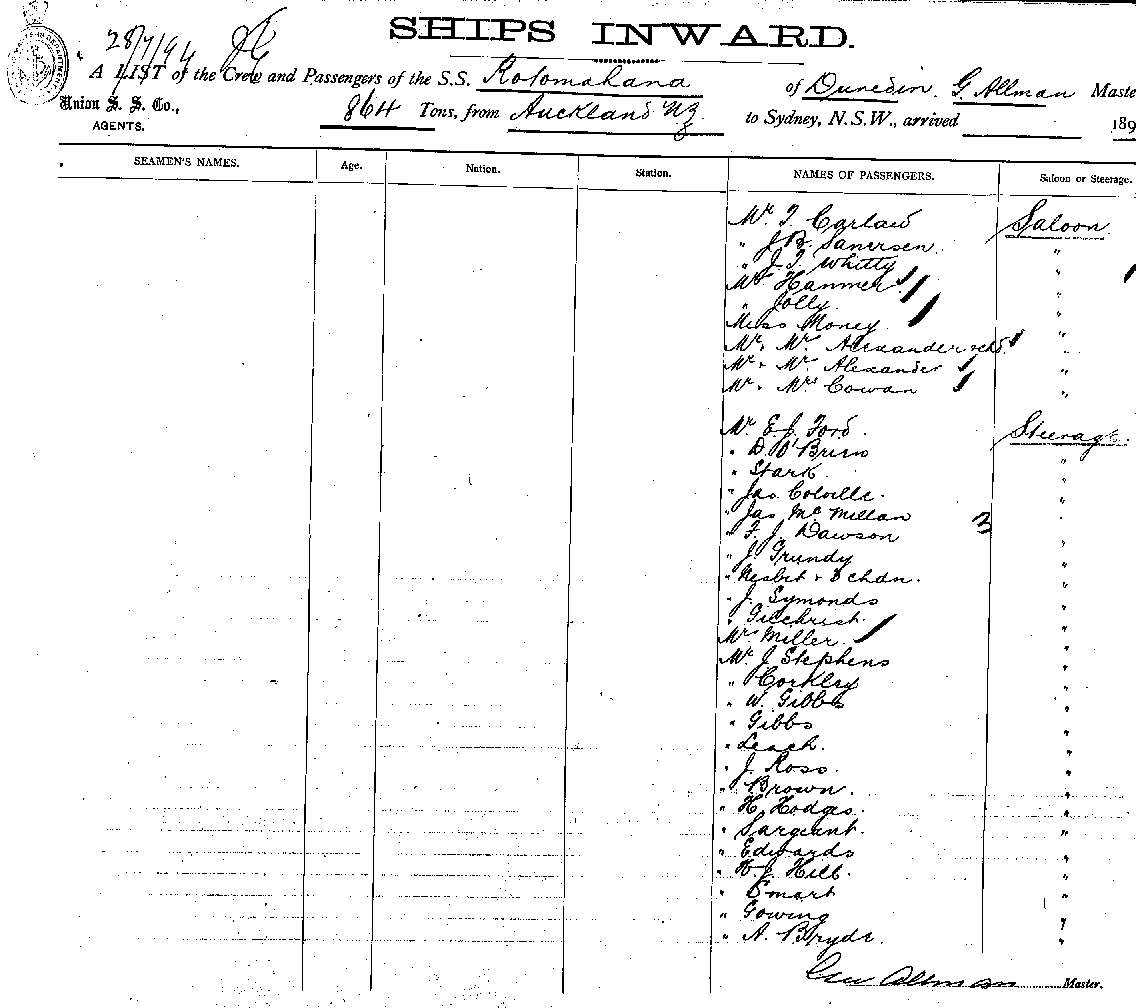 SHIPS INWARD.
28/7/94
A LIST of the Crew and Passengers of the S.S. Rotomahana of Dunedin, G. Allman Maste
Union S. S. Co., 864 Tons, from Auckland NZ. to Sydney, N.S.W., arrived 189
AGENTS.
SEAMEN'S NAMES. Age. Nation. Station. NAMES OF PASSENGERS. Saloon or Steerage.
Mr T Carlaw Saloon
" J.B. "
" J. T. Whitty "
Mrs Hanmer "
" Jolly "
Miss Money "
Mr + Mrs Alexander "
Mr + Mrs Alexander "
Mr + Mrs Cowan "
Mr E. J. Ford. Steerage.
" D O'Brien "
" Stark "
" Jas Colville. "
" Jas McMillan "
" F. J. Dawson 3 "
" J. Grundy "
" Nesbit + 3 chdn. "
" J. Symonds "
" Gilchrist. "
Mrs Miller. "
Mr J Stephens "
" Corkley "
" W. Gibbs "
" Gibbs "
" Leach. "
" J. Ross. "
" Brown. "
" H. Hodges. "
" Sargeant. "
" Edwards "
" W. J. Hill. "
" Smart "
" Gowing "
" A. Bryde. "
Geo Allman Master.